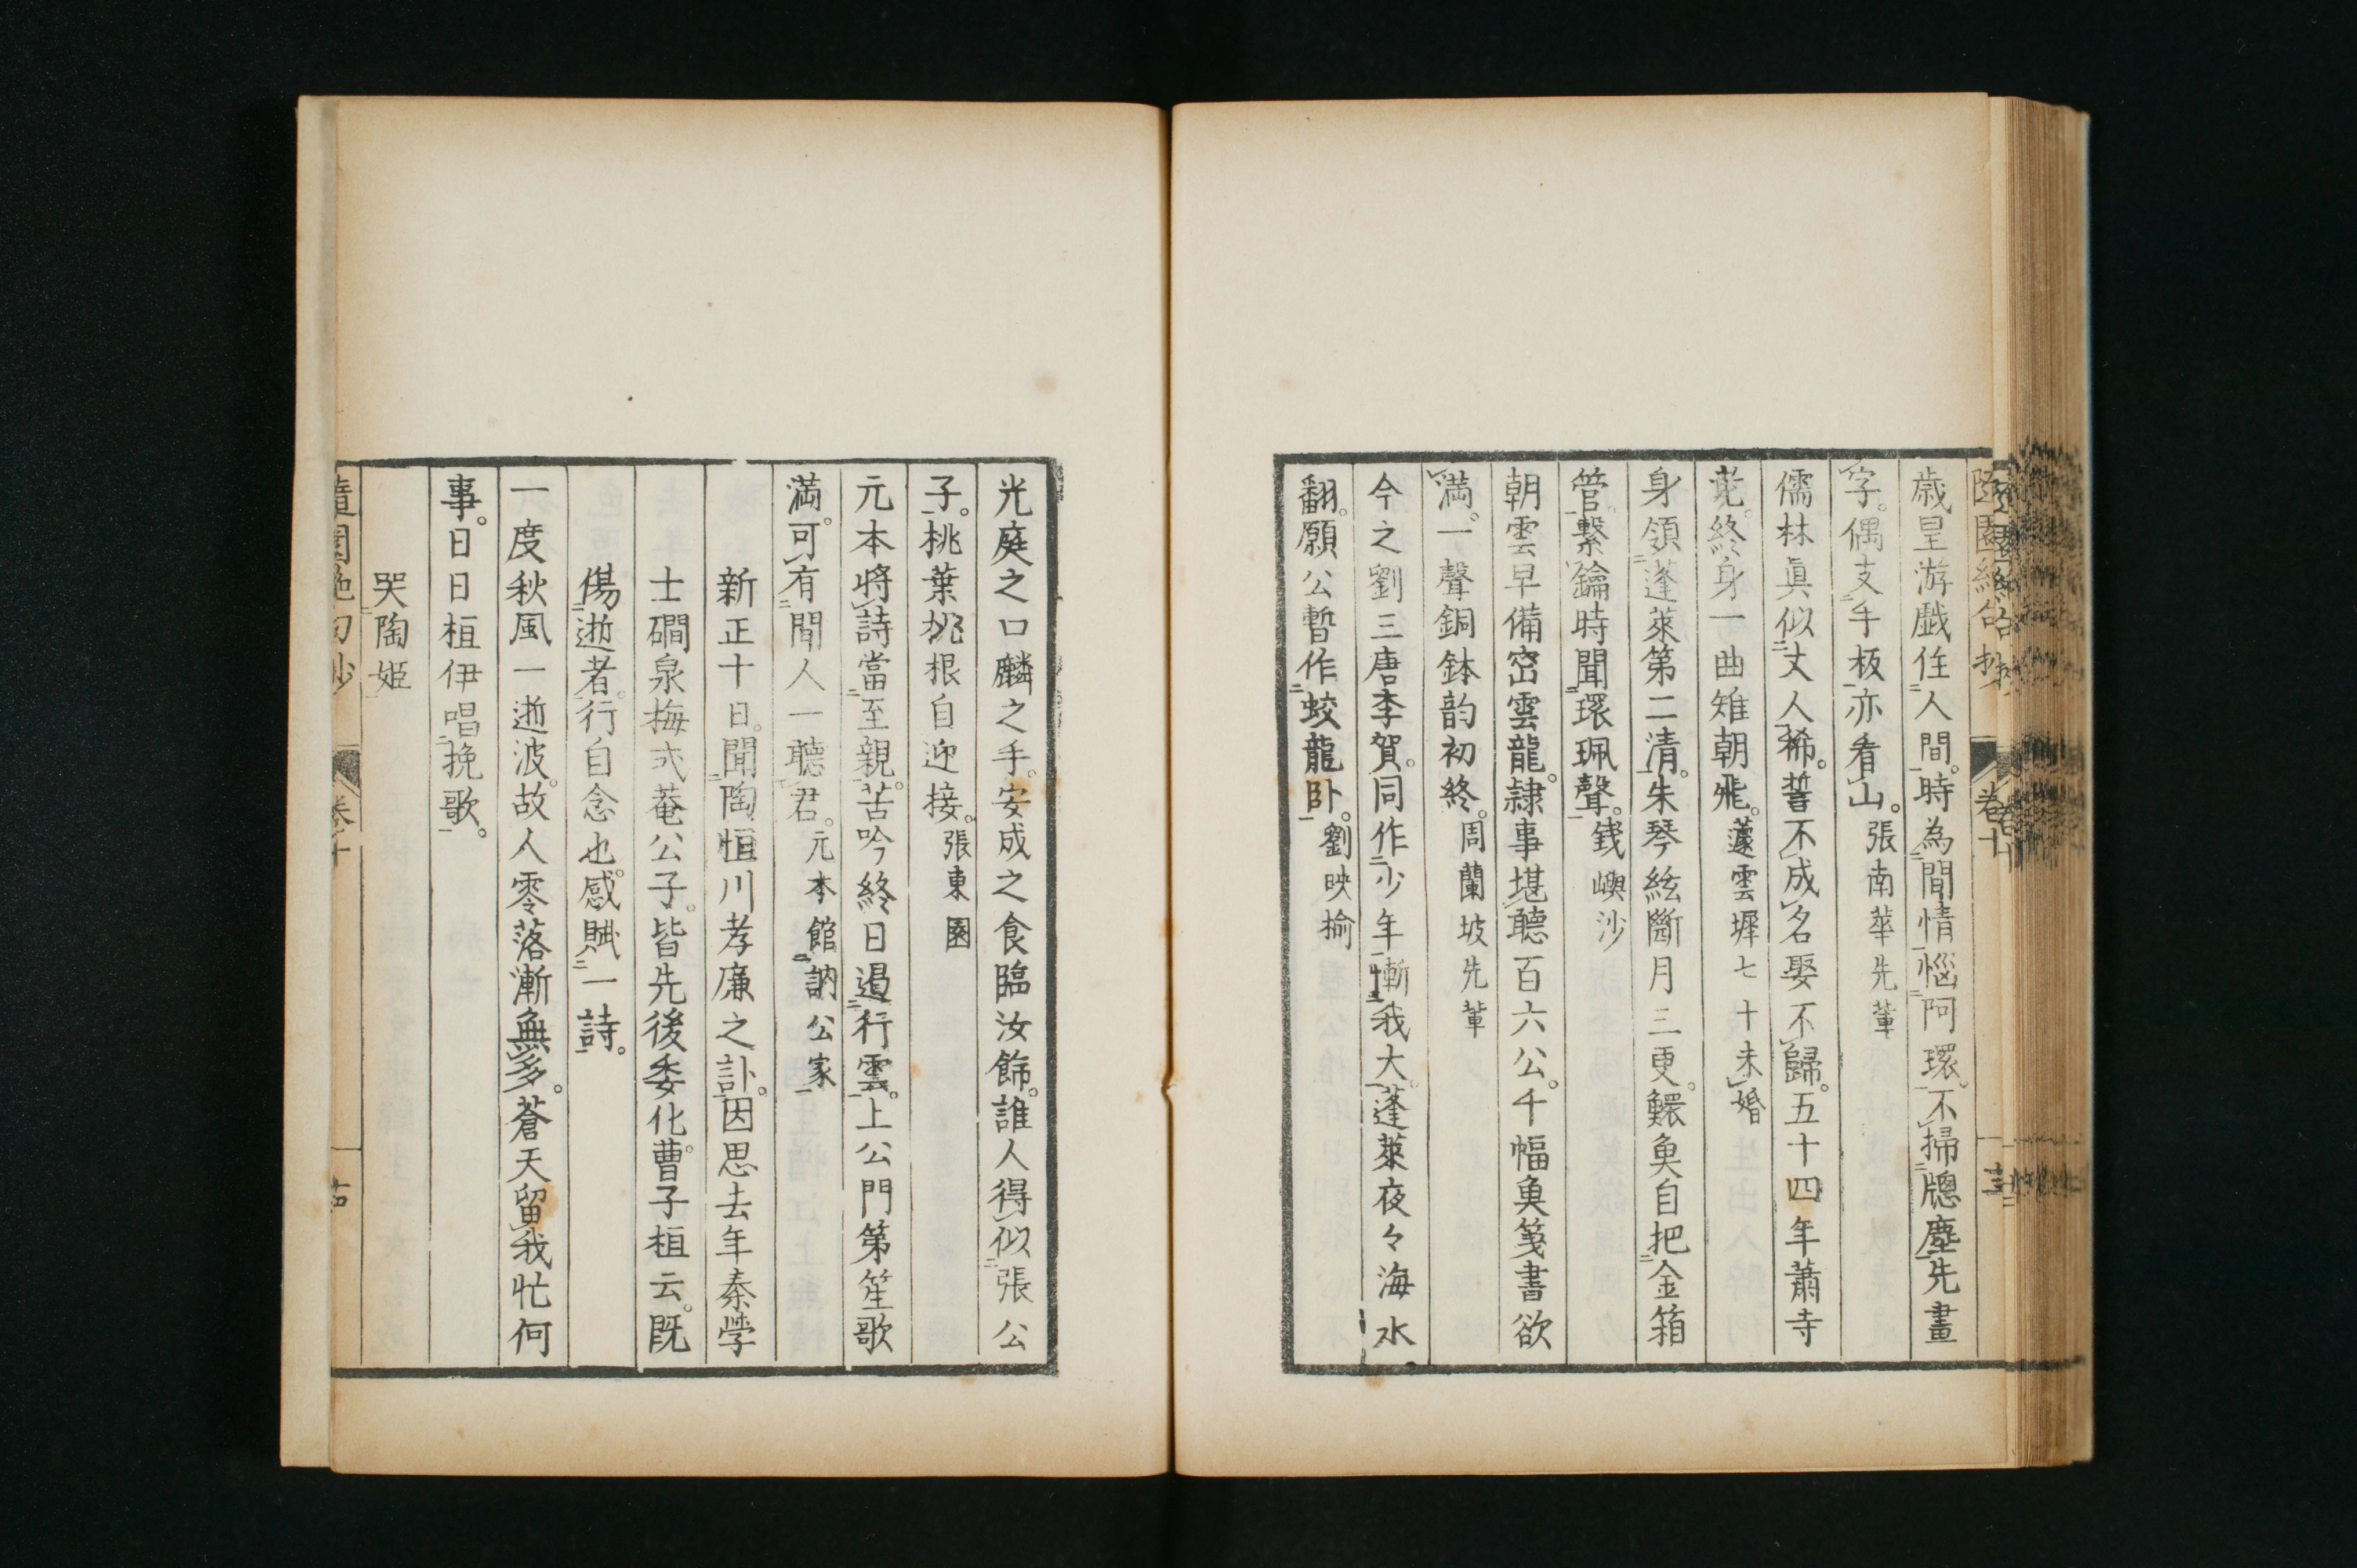 歳星游戯住人間。時為間情惱阿環。不掃牕塵先畫
字。偶支手板亦看山。張南華先輩
儒林眞似丈人稀。誓不成名娶不歸。五十四年蕭寺
老。終身一曲雉朝飛。蘧雲墀七十未婚
身領蓬萊第二清。朱琴絃斷月三更。鰥魚自把金箱
管。繫鑰時聞環珮聲。錢嶼沙
朝雲早備宻雲龍。隷事堪聽百六公。千幅魚箋書欲
滿。一聲銅鉢韵初終。周蘭坡先輩
今之劉三唐李賀。同作少年慚我大。蓬萊夜々海水
翻。願公暫作蛟龍卧。劉映榆
光庭之口麟之手。安成之食臨汝飾。誰人得似張公
子。桃葉桃根自迎接。張東園
元本將詩當至親。苦吟終日遏行雲。上公門第笙歌
滿。可有聞人一聽君。元本館訥公家
新正十日。聞陶恒川孝廉之訃。因思去年秦學
士磵泉梅式菴公子。皆先後委化。曹子桓云。既
傷逝者。行自念也。感賦一詩。
一度秋風一逝波。故人零落漸無多。蒼天留我忙何
事。日日桓伊唱挽歌。
哭陶姫
卷十